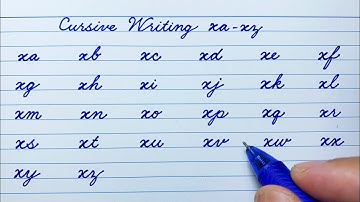 Cursive Writing xa-xz
xa xb xc xd xe xf
xg xh xi xj xk xl
xm xn xo xp xq xr
xs xt xu xv xw xx
xy xz